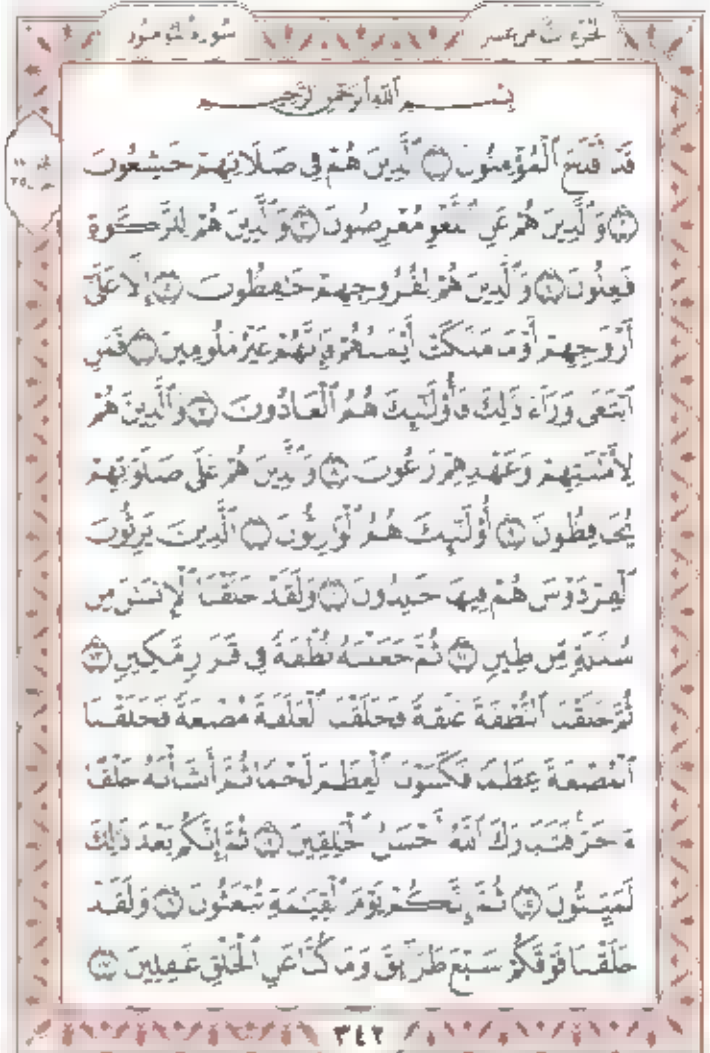 سورة المؤمنون الجزء الثامن عشر
بِسْمِ ٱللَّهِ ٱلرَّحْمَٰنِ ٱلرَّحِيمِ
قَدْ أَفْلَحَ ٱلْمُؤْمِنُونَ ١ ٱلَّذِينَ هُمْ فِى صَلَاتِهِمْ خَٰشِعُونَ
٢ وَٱلَّذِينَ هُمْ عَنِ ٱللَّغْوِ مُعْرِضُونَ ٣ وَٱلَّذِينَ هُمْ لِلزَّكَوٰةِ
فَٰعِلُونَ ٤ وَٱلَّذِينَ هُمْ لِفُرُوجِهِمْ حَٰفِظُونَ ٥ إِلَّا عَلَىٰٓ
أَزْوَٰجِهِمْ أَوْ مَا مَلَكَتْ أَيْمَٰنُهُمْ فَإِنَّهُمْ غَيْرُ مَلُومِينَ ٦ فَمَنِ
ٱبْتَغَىٰ وَرَآءَ ذَٰلِكَ فَأُو۟لَٰٓئِكَ هُمُ ٱلْعَادُونَ ٧ وَٱلَّذِينَ هُمْ
لِأَمَٰنَٰتِهِمْ وَعَهْدِهِمْ رَٰعُونَ ٨ وَٱلَّذِينَ هُمْ عَلَىٰ صَلَوَٰتِهِمْ
يُحَافِظُونَ ٩ أُو۟لَٰٓئِكَ هُمُ ٱلْوَٰرِثُونَ ١٠ ٱلَّذِينَ يَرِثُونَ
ٱلْفِرْدَوْسَ هُمْ فِيهَا خَٰلِدُونَ ١١ وَلَقَدْ خَلَقْنَا ٱلْإِنسَٰنَ مِن
سُلَٰلَةٍ مِّن طِينٍ ١٢ ثُمَّ جَعَلْنَٰهُ نُطْفَةً فِى قَرَارٍ مَّكِينٍ ١٣
ثُمَّ خَلَقْنَا ٱلنُّطْفَةَ عَلَقَةً فَخَلَقْنَا ٱلْعَلَقَةَ مُضْغَةً فَخَلَقْنَا
ٱلْمُضْغَةَ عِظَٰمًا فَكَسَوْنَا ٱلْعِظَٰمَ لَحْمًا ثُمَّ أَنشَأْنَٰهُ خَلْقًا
ءَاخَرَ فَتَبَارَكَ ٱللَّهُ أَحْسَنُ ٱلْخَٰلِقِينَ ١٤ ثُمَّ إِنَّكُم بَعْدَ ذَٰلِكَ
لَمَيِّتُونَ ١٥ ثُمَّ إِنَّكُمْ يَوْمَ ٱلْقِيَٰمَةِ تُبْعَثُونَ ١٦ وَلَقَدْ
خَلَقْنَا فَوْقَكُمْ سَبْعَ طَرَآئِقَ وَمَا كُنَّا عَنِ ٱلْخَلْقِ غَٰفِلِينَ ١٧
٣٤٢